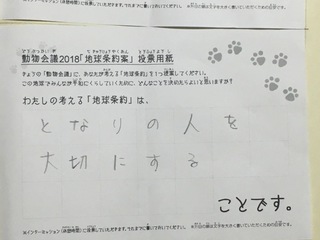 動物会議2018「地球条約案」投票用紙
きょうの「動物会議」に、あなたが考える「地球条約」を1つ提案してください。
この地球でみんなが平和にくらしていくために、どんなことを決めたらよいと思いますか?
わたしの考える「地球条約」は、
となりの人を
大切にする
ことです。